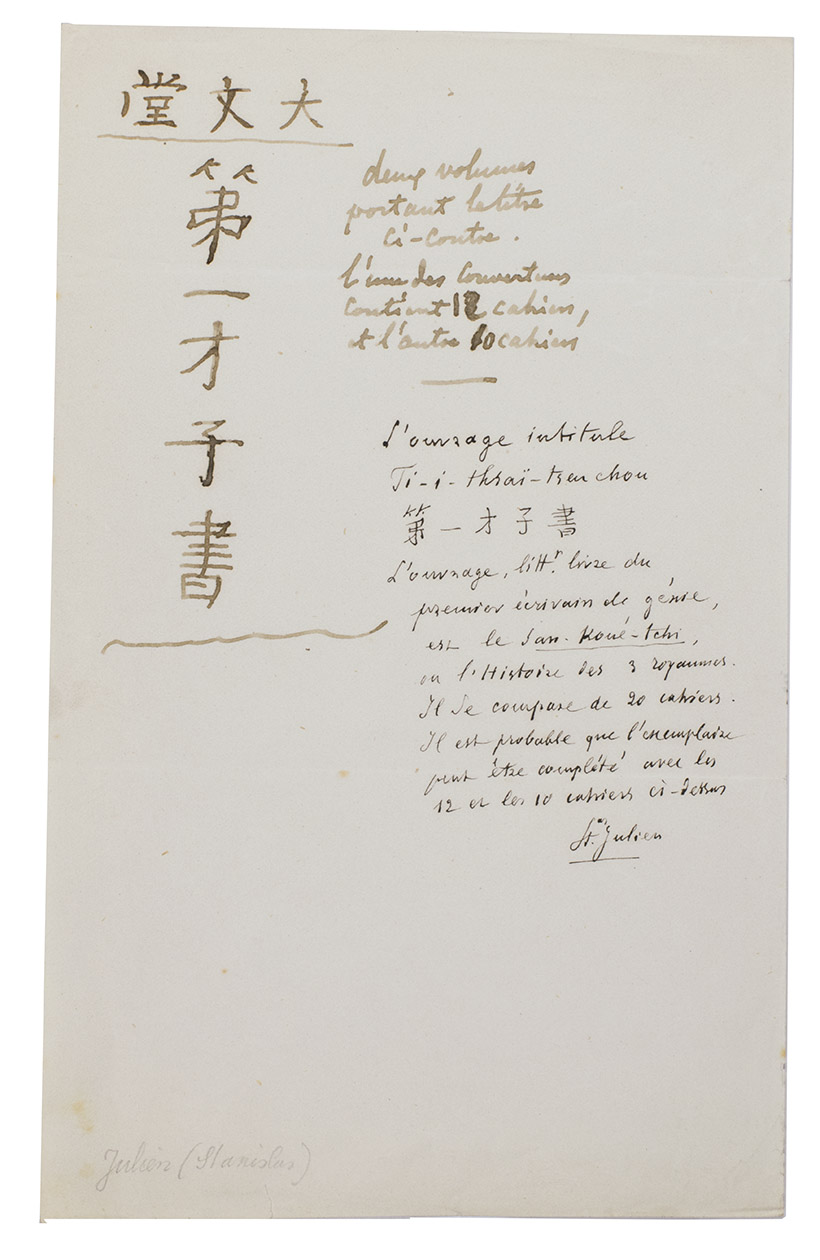 大文堂
第一才子書
deux volumes
portant le titre
ci-contre.
l'une des couvertures
contient 12 cahiers,
et l'autre 10 cahiers
L'ouvrage intitulé
Ti-i-thsaï-tseu chou
第一才子書
L'ouvrage, littr. livre du
premier écrivain de génie,
est le San-Koué-tchi,
ou l'Histoire des 3 royaumes.
Il se compose de 20 cahiers.
Il est probable que l'exemplaire
peut être complété avec les
12 et les 10 cahiers ci-dessus
St. Julien
Julien (Stanislas)